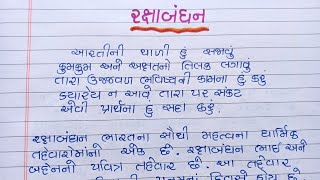 રક્ષાબંધન
આરતીની થાળી હું સજાવું
કુમકુમ અને અક્ષતનો તિલક લગાવું
તારા ઉજ્જવળ ભવિષ્યની કામના હું કરું
ક્યારેય ન આવે તારા પર સંકટ
એવી પ્રાર્થના હું સદા કરું.
રક્ષાબંધન ભારતના સૌથી મહત્વના ધાર્મિક
તહેવારોમાંનો એક છે. રક્ષાબંધન ભાઈ અને
બહેનનો પવિત્ર તહેવાર છે. આ તહેવાર
દિવસે હોય છે